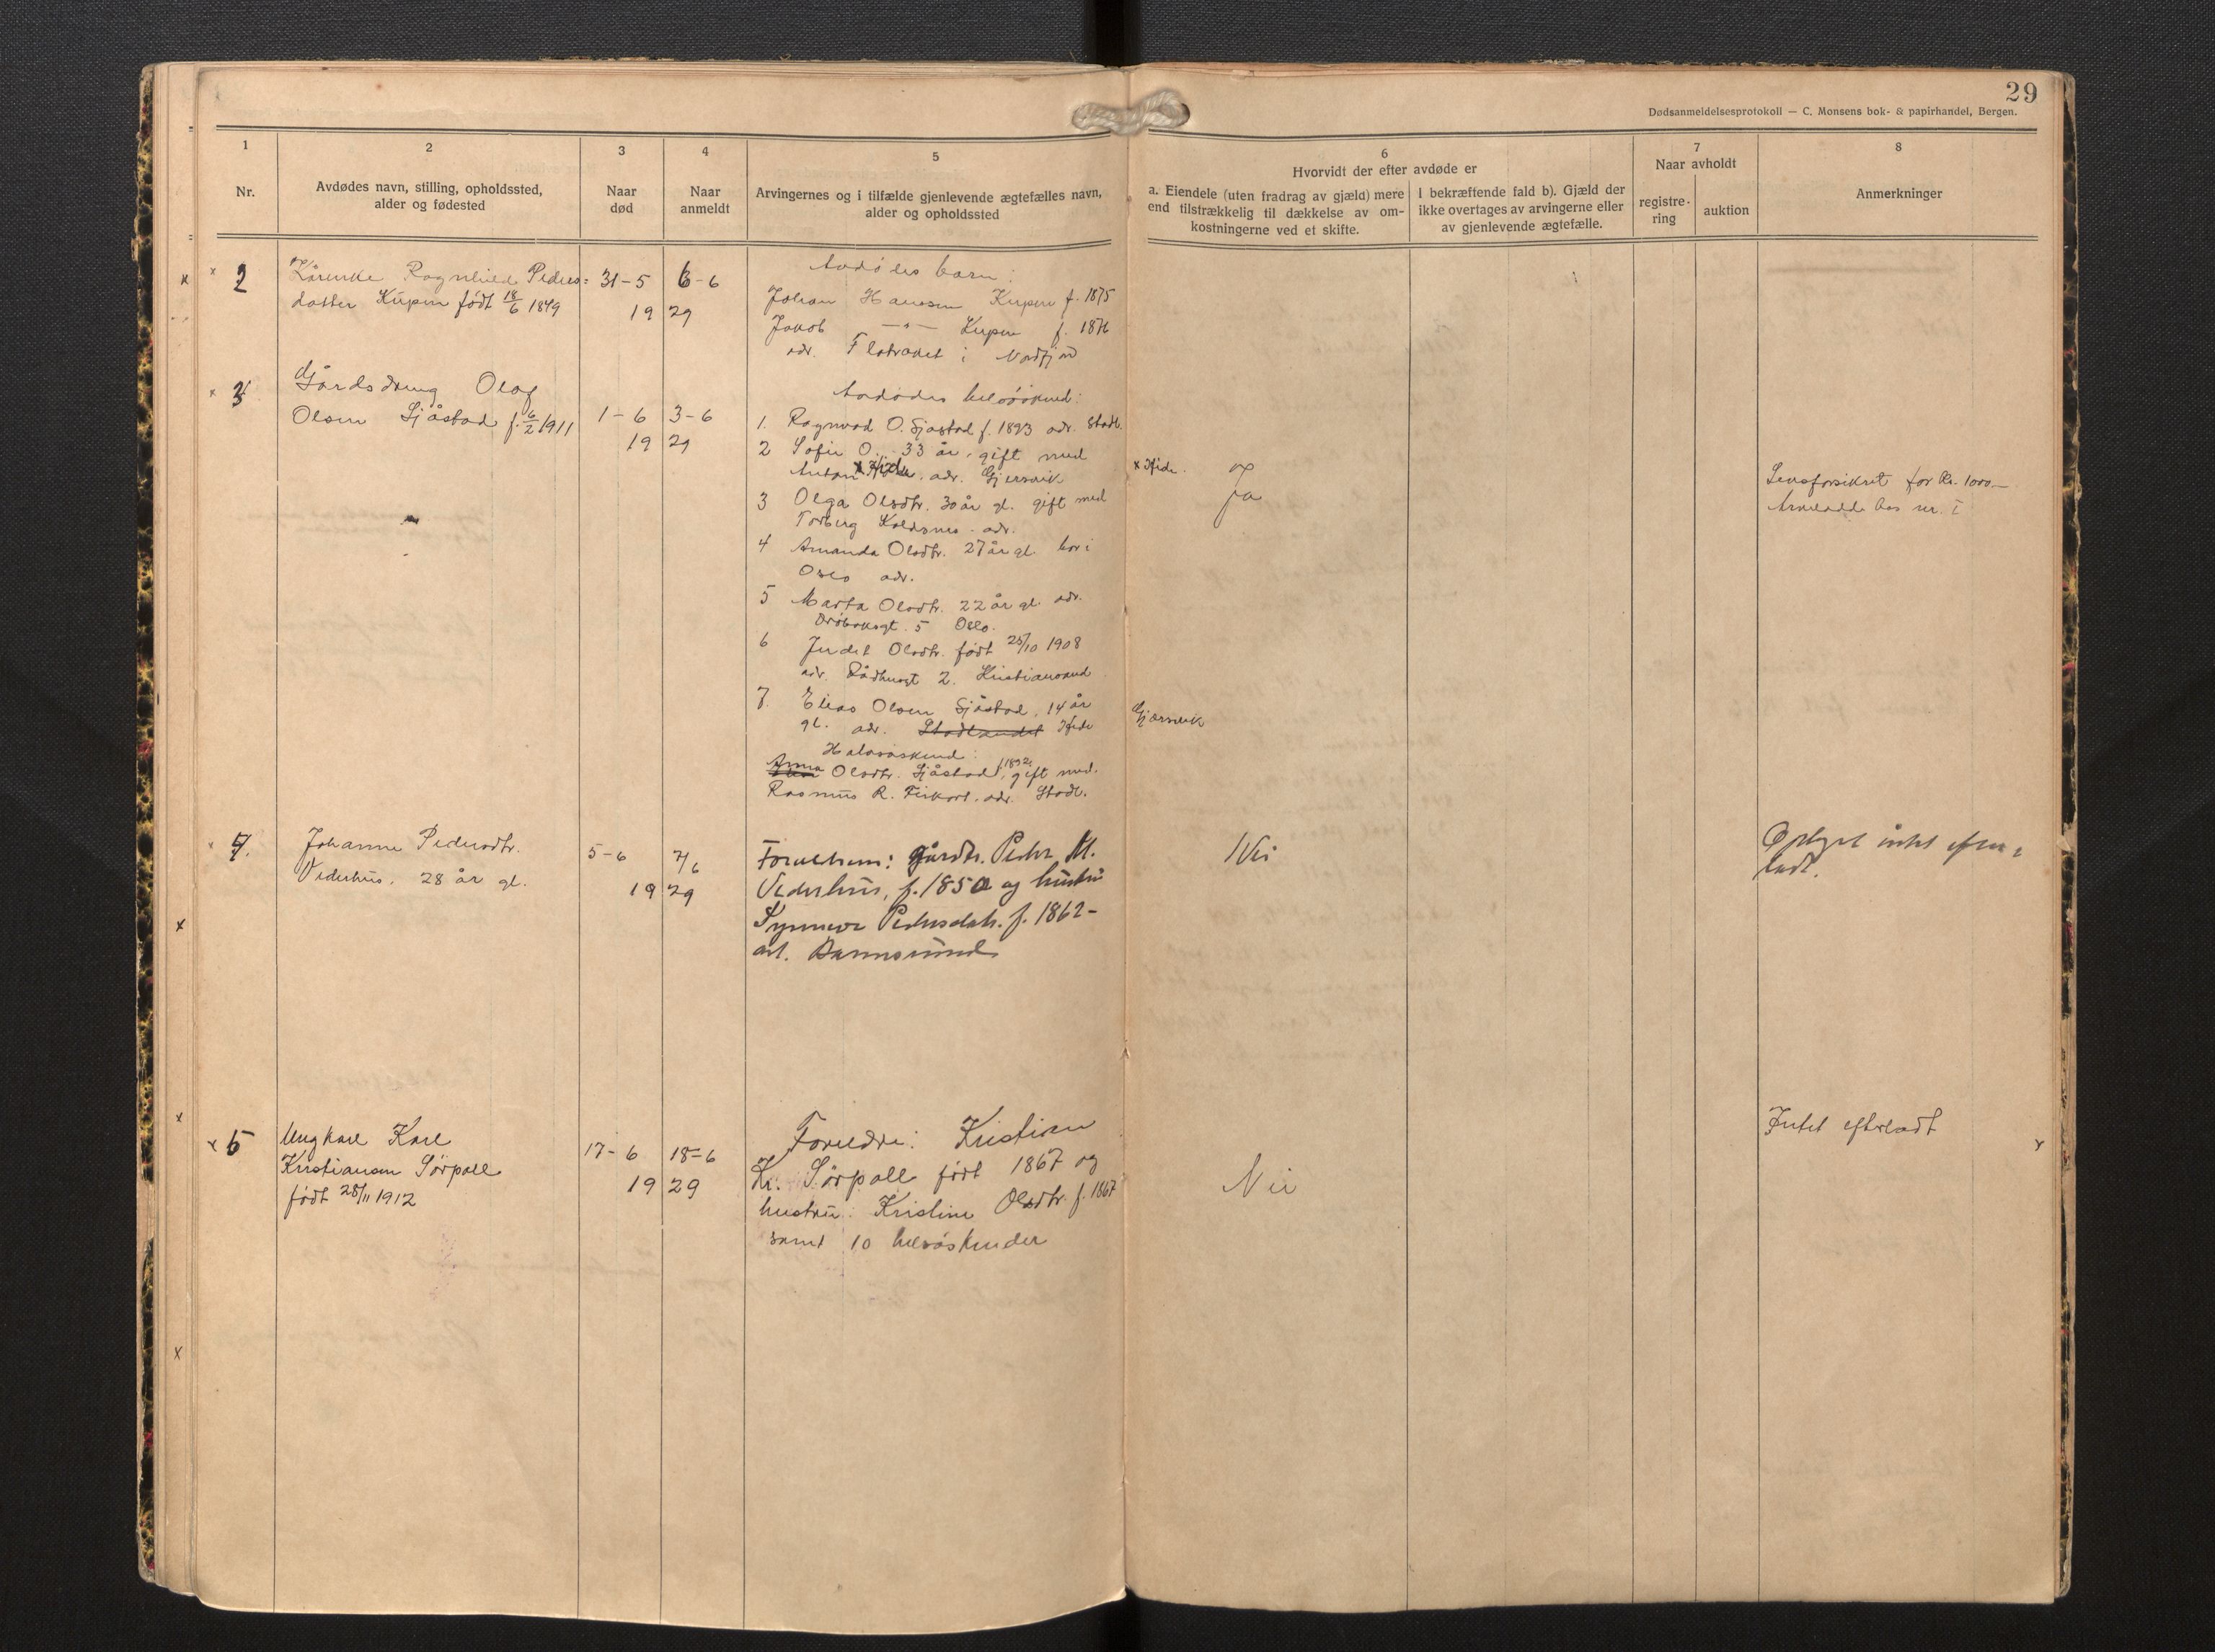 29
Dødsanmeldelsesprotokoll — C. Monsens bok- & papirhandel, Bergen.
1
2
3
4
5
6
7
8
Nr.
Avdødes navn, stilling, opholdssted,
alder og fødested
Naar
død
Naar
anmeldt
Arvingernes og i tilfælde gjenlevende ægtefælles navn,
alder og opholdssted
Hvorvidt der efter avdøde er
a. Eiendele (uten fradrag av gjæld) mere
end tilstrækkelig til dækkelse av om-
kostningerne ved et skifte.
I bekræftende fald b). Gjæld der
ikke overtages av arvingerne eller
av gjenlevende ægtefælle.
Naar avholdt
registre-
ring
auktion
Anmerkninger
2
Ragnhild Peders=
datter Kupen født 18/6 1849
31-5
6-6
19 29
Avdødes barn:
Johan Hansen Kupen f. 1875
Jakob —"— Kupen f. 1876
adr. Flatraket i Nordfjord
3
Gårdsdreng Olaf
Olsen Sjåstad f. 6/2 1911
1-6
3-6
19 29
Avdødes helsøskend:
1. Ragnvad O. Sjåstad f. 1893 adr. Stadl.
2 Sofie O. 33 år, gift med
Anton Hide, adr. Gjersvik
x Hide.
3 Olga Olsdtr. 30 år gl. gift med
Torberg Koldsnes adr.
4 Amanda Olsdtr. 27 år gl. bor i
Oslo adr.
5 Marta Olsdtr. 22 år gl. adr.
5 Oslo.
6 Olsdtr. født 25/10 1908
adr. Rådhusgt 2. Kristiansund
7. Elias Olsen Sjåstad, 14 år
gl. adr. Stadlandet Hide
Gjersvik
Halvsøskend:
Anna Olsdtr. Sjåstad f. 1892, gift med.
Rasmus R. adr. Stadl.
Ja
Livsforsikret for Kr. 1000.—
hos nr. I
4.
Johanne Pedersdtr.
Vederhus. 28 år gl.
5-6
7/6
19 29
Forældrene: gårdbr. Peder M.
Vederhus, f. 1850 og hustru
Synneve Pedersdatr. f. 1862-
adr. Barmsund
Nei
Oplyst intet efter=
ladt.
5
Ungkarl Karl
Kristiansen Sørpoll
født 28/11 1912
17-6
18-6
19 29
Foreldre: Kristian
Kr. Sørpoll født 1867 og
hustru: Kristine Olsdtr. f. 1867
samt 10 helsøskender
Nei
Intet efterladt